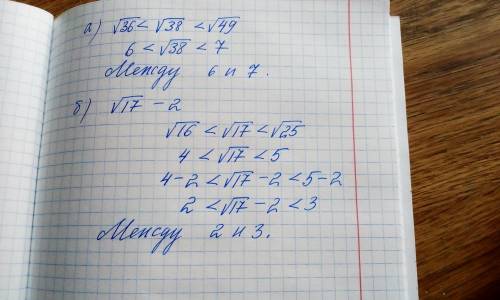 а) √36 < √38 < √49
6 < √38 < 7
Между 6 и 7.
б) √17 - 2
√16 < √17 < √25
4 < √17 < 5
4-2 < √17 - 2 < 5-2
2 < √17 - 2 < 3
Между 2 и 3.